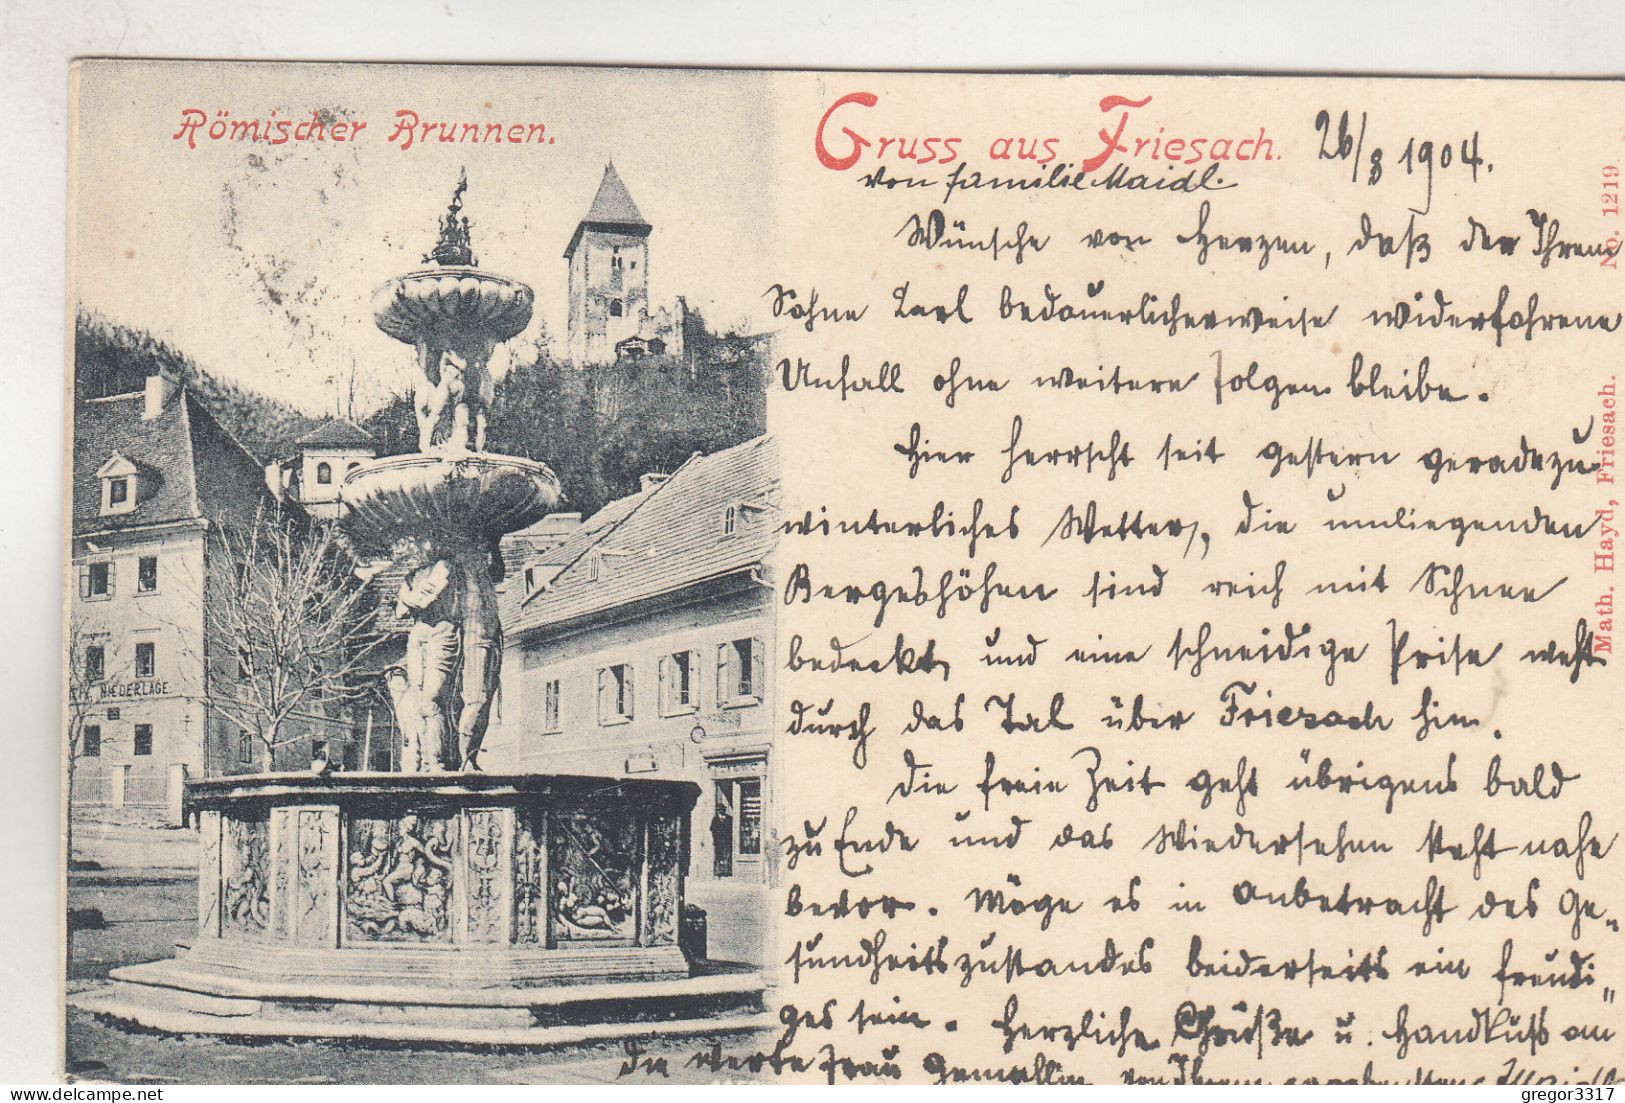 Römischer Brunnen.
Gruss aus Friesach. 26/8 1904.
von familie Maidl.
Wünsche von Herzen, daß der Ihrem
Sohne Karl bedauerlicherweise widerfahrene
Unfall ohne weitere Folgen bleibe.
Hier herrscht seit gestern geradezu
winterliches Wetter, die umliegenden
Bergeshöhen sind reich mit Schnee
bedeckt, und eine schneidige Prise weht
durch das Tal über Friesach hin.
Die freie Zeit geht übrigens bald
zu Ende und das Wiedersehen steht nahe
bevor. Möge es in Anbetracht des Ge-
sundheitszustandes beiderseits ein freudi-
ges sein. Herzliche Grüße u. Handkuß an
die werte Frau Gemahlin von Ihrem ergebensten
Math. Hayd, Friesach. No. 1219
NIEDERLAGE
gregor3317